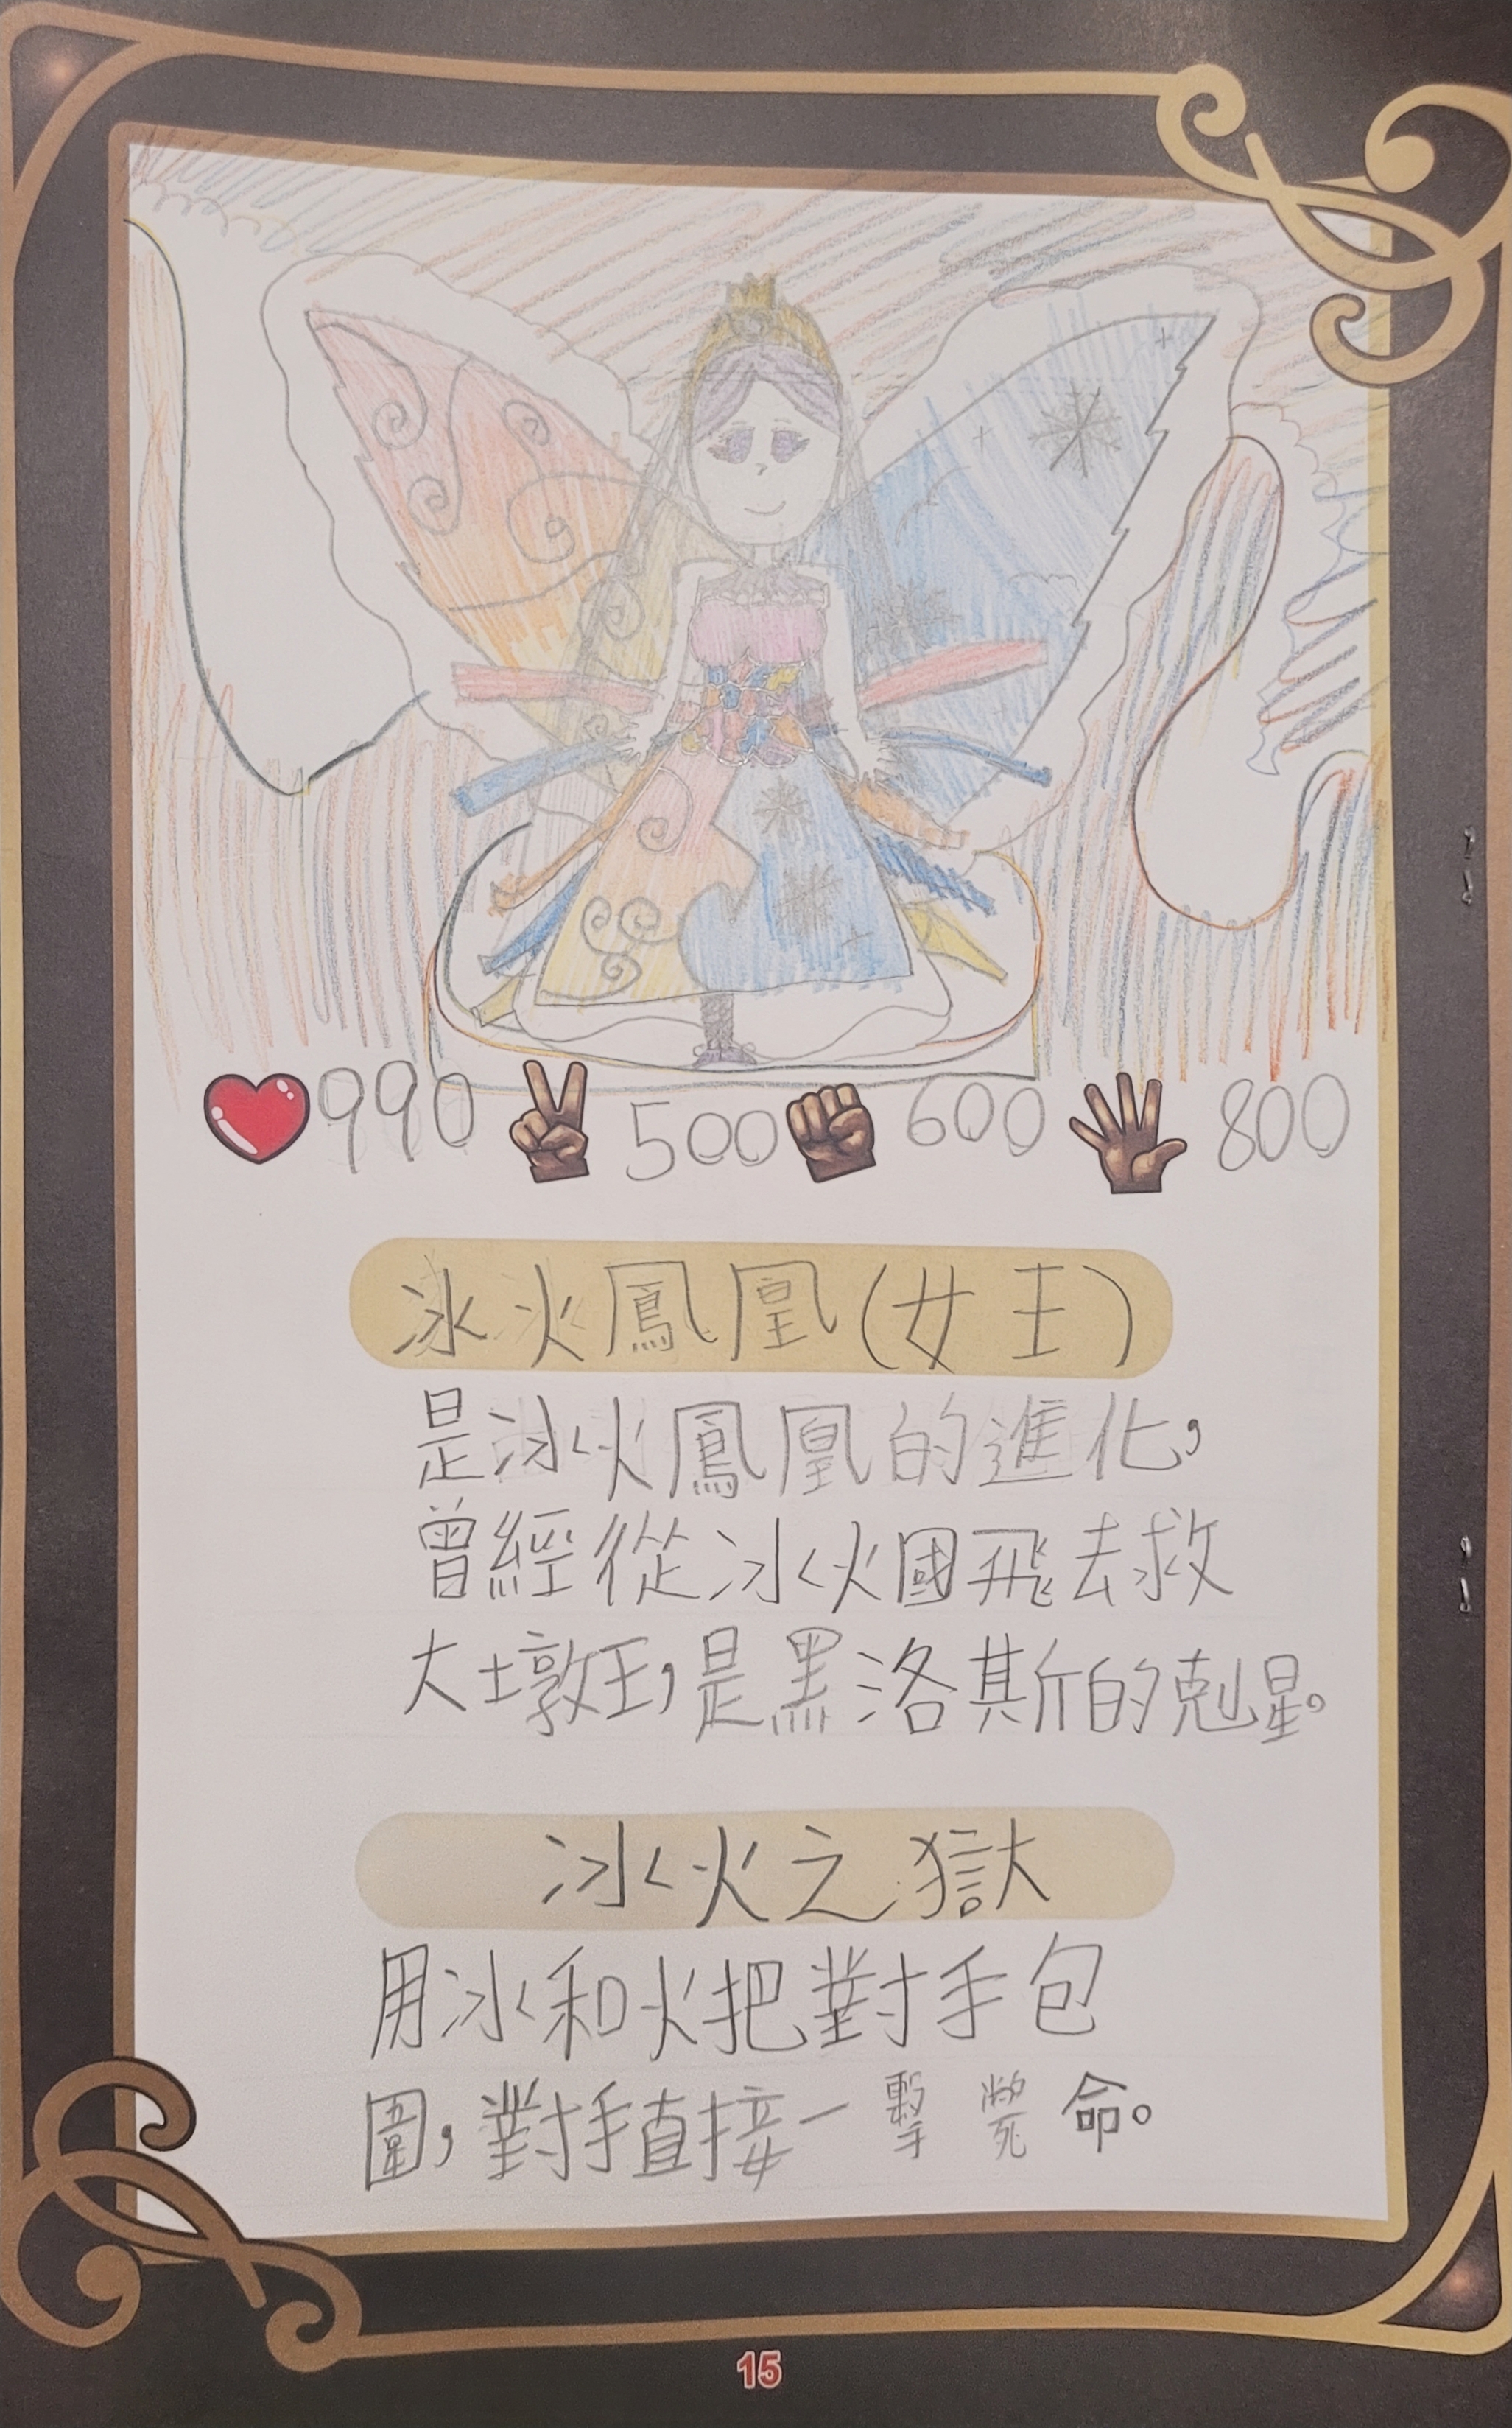 990 500 600 800
冰火鳳凰(女王)
是冰火鳳凰的進化,
曾經從冰火國飛去救
大墩王,是黑洛斯的剋星。
冰火之獄
用冰和火把對手包
圍,對手直接一擊斃命。
15